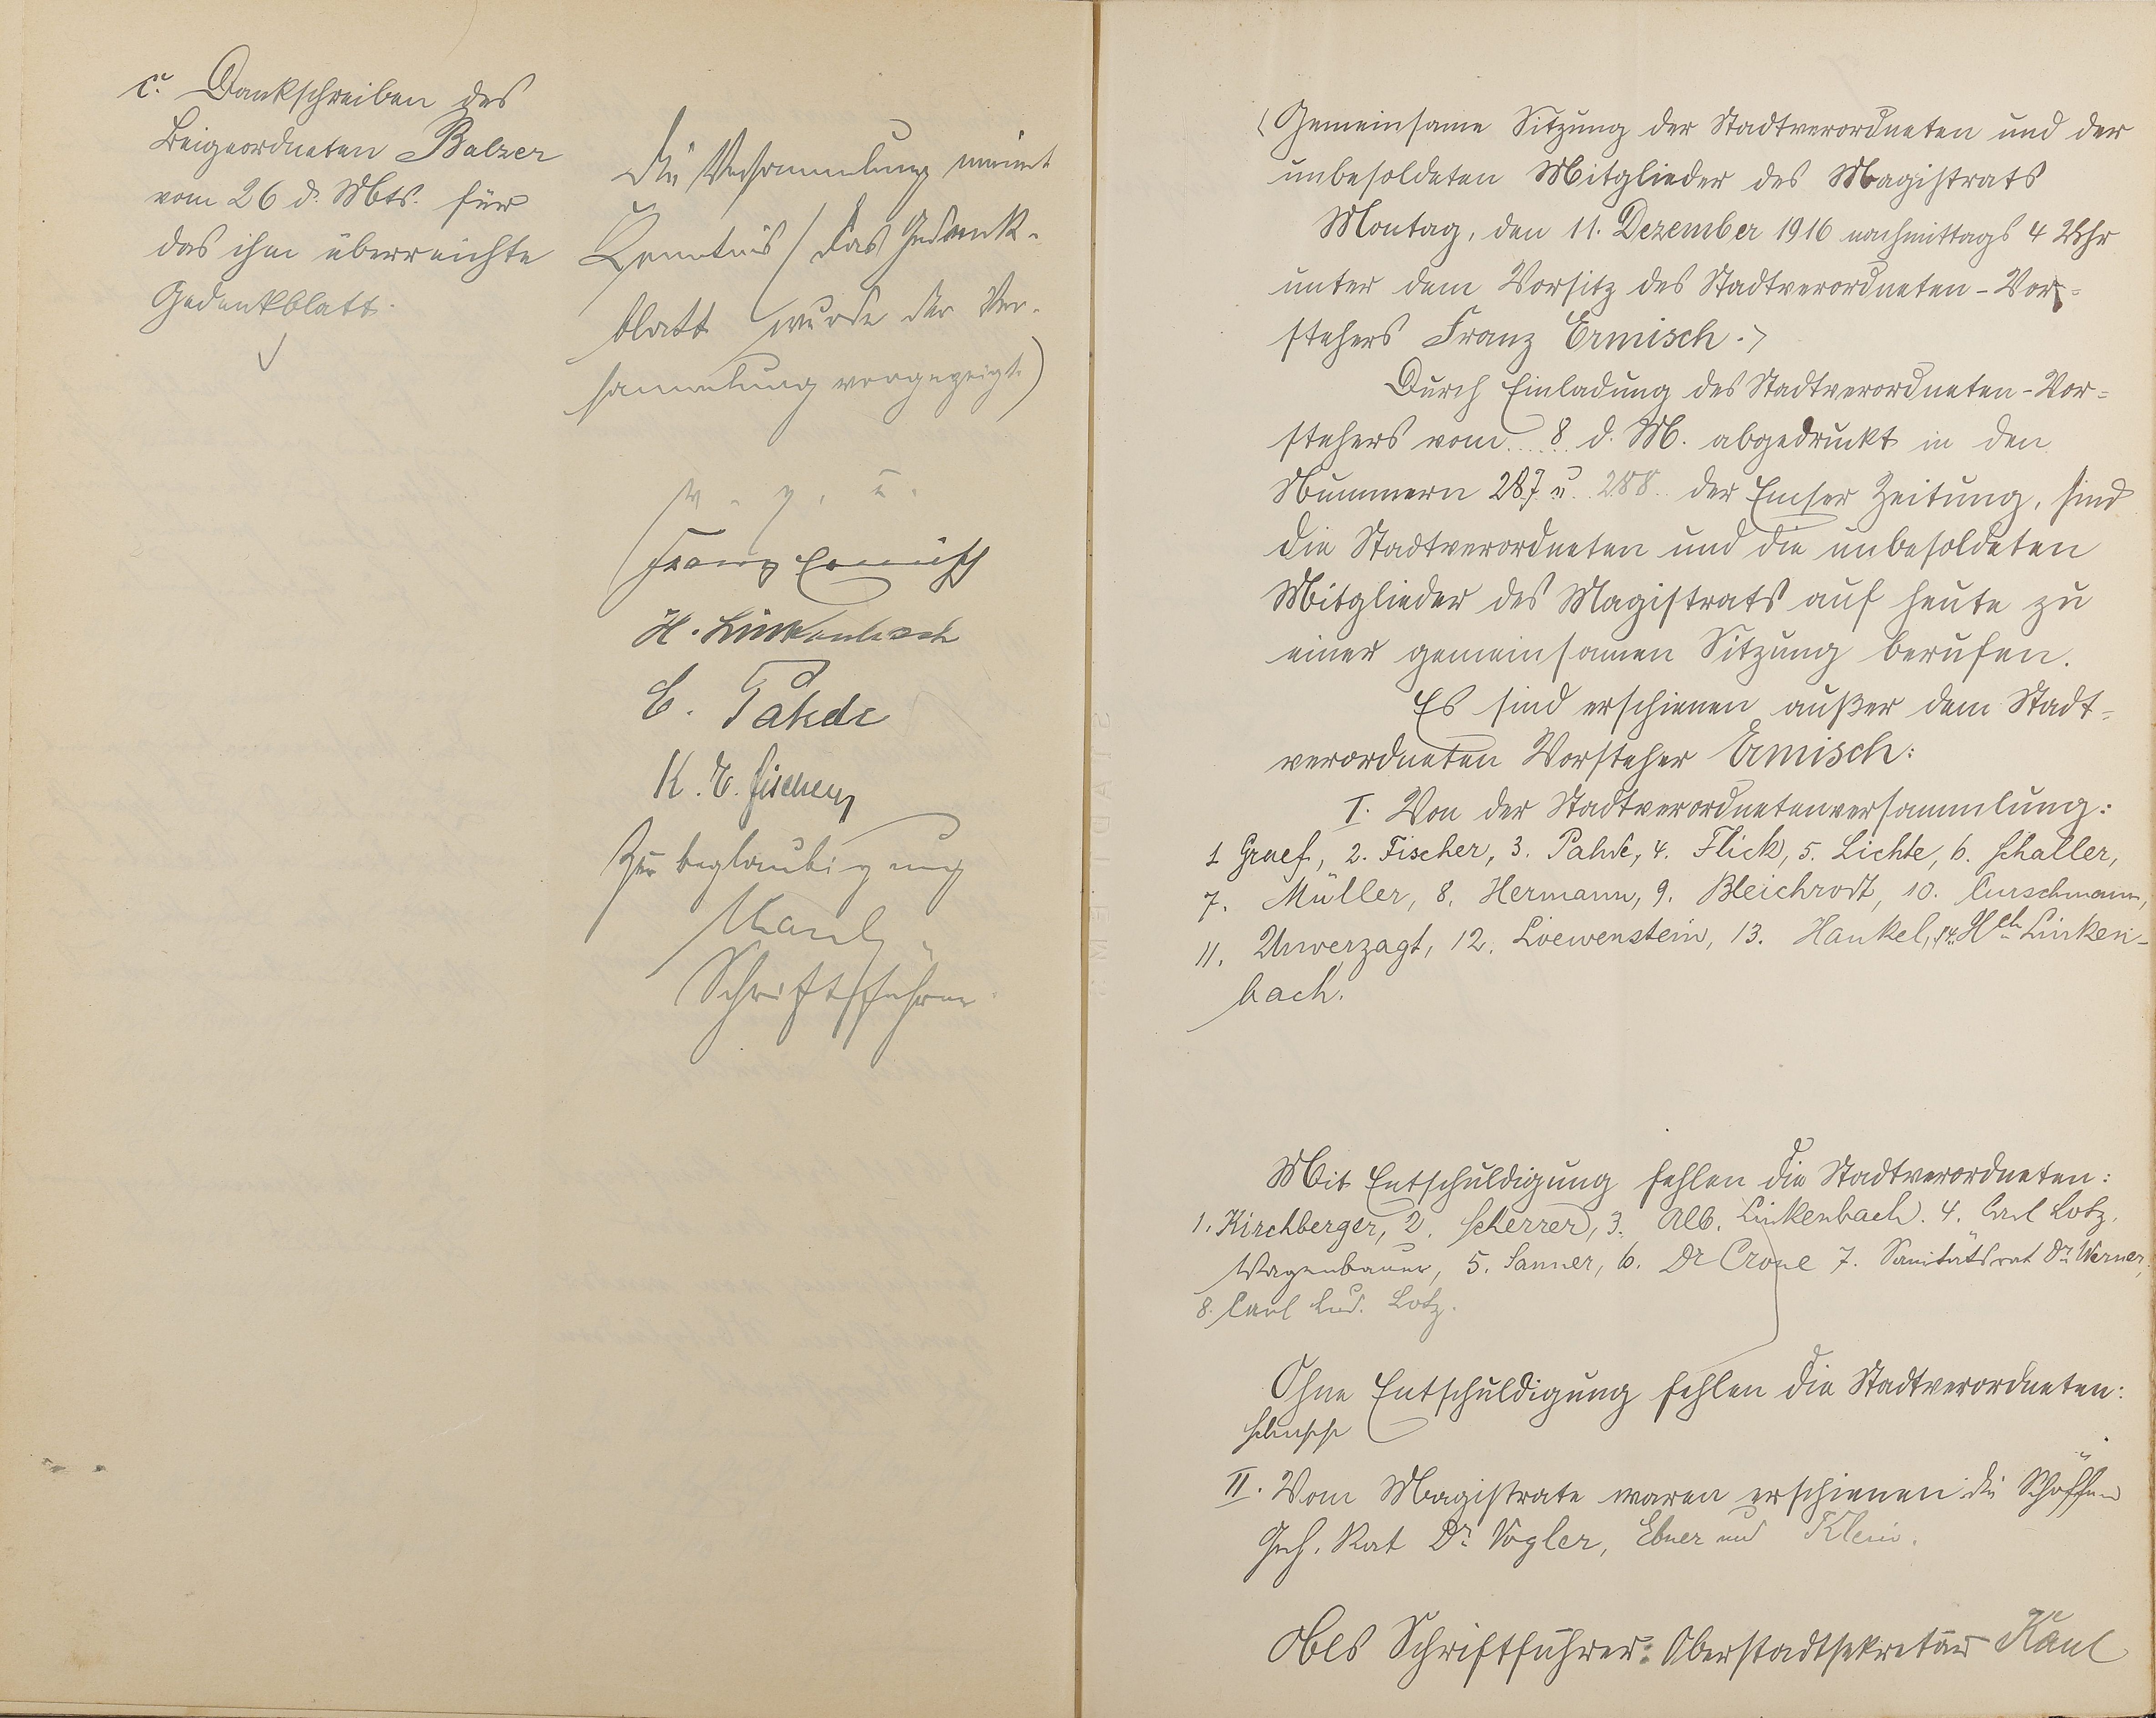 c. Dankschreiben des
Beigeordneten Balzer
vom 26 d. Mts. für
das ihm überreichte
Gedenkblatt.
Die Versammlung nimmt
Kenntnis (das Gedenk-
blatt wurde der Ver-
sammlung vorgezeigt.)
v. g. u.
Franz Ermisch
H. Linkenbach
C. Pahde
K. E. Fischer
Zur Beglaubigung
Kaul
Schriftführer
Gemeinsame Sitzung der Stadtverordneten und der
unbesoldeten Mitglieder des Magistrats
Montag, den 11. Dezember 1916 nachmittags 4 Uhr
unter dem Vorsitz des Stadtverordneten-Vor=
stehers Franz Ermisch.
Durch Einladung des Stadtverordneten-Vor=
stehers vom 8 d. M. abgedruckt in den
Nummern 287 u. 288 der Emser Zeitung, sind
die Stadtverordneten und die unbesoldeten
Mitglieder des Magistrats auf heute zu
einer gemeinsamen Sitzung berufen.
Es sind erschienen außer dem Stadt=
verordneten Vorsteher Ermisch:
I. Von der Stadtverordnetenversammlung:
1 Graef, 2. Fischer, 3. Pahde, 4. Flick, 5. Lichte, 6. Schaller,
7. Müller, 8. Hermann, 9. Bleichrodt, 10. Curschmann,
11. Unverzagt, 12. Loewenstein, 13. Hankel, 14. Hch Linken-
bach.
Mit Entschuldigung fehlen die Stadtverordneten:
1. Kirchberger, 2. Scherrer, 3. Alb. Linkenbach. 4. Carl Lotz,
Wagenbauer, 5. Sanner, 6. Dr Crone 7. Sanitätsrat Dr. Werner,
8. Carl Lud. Lotz.
Ohne Entschuldigung fehlen die Stadtverordneten:
Schupp
II. Vom Magistrate waren erschienen die Schöffen
Geh. Rat Dr. Vogler, Ebner und Klein.
Als Schriftführer: Oberstadtsekretär Kaul